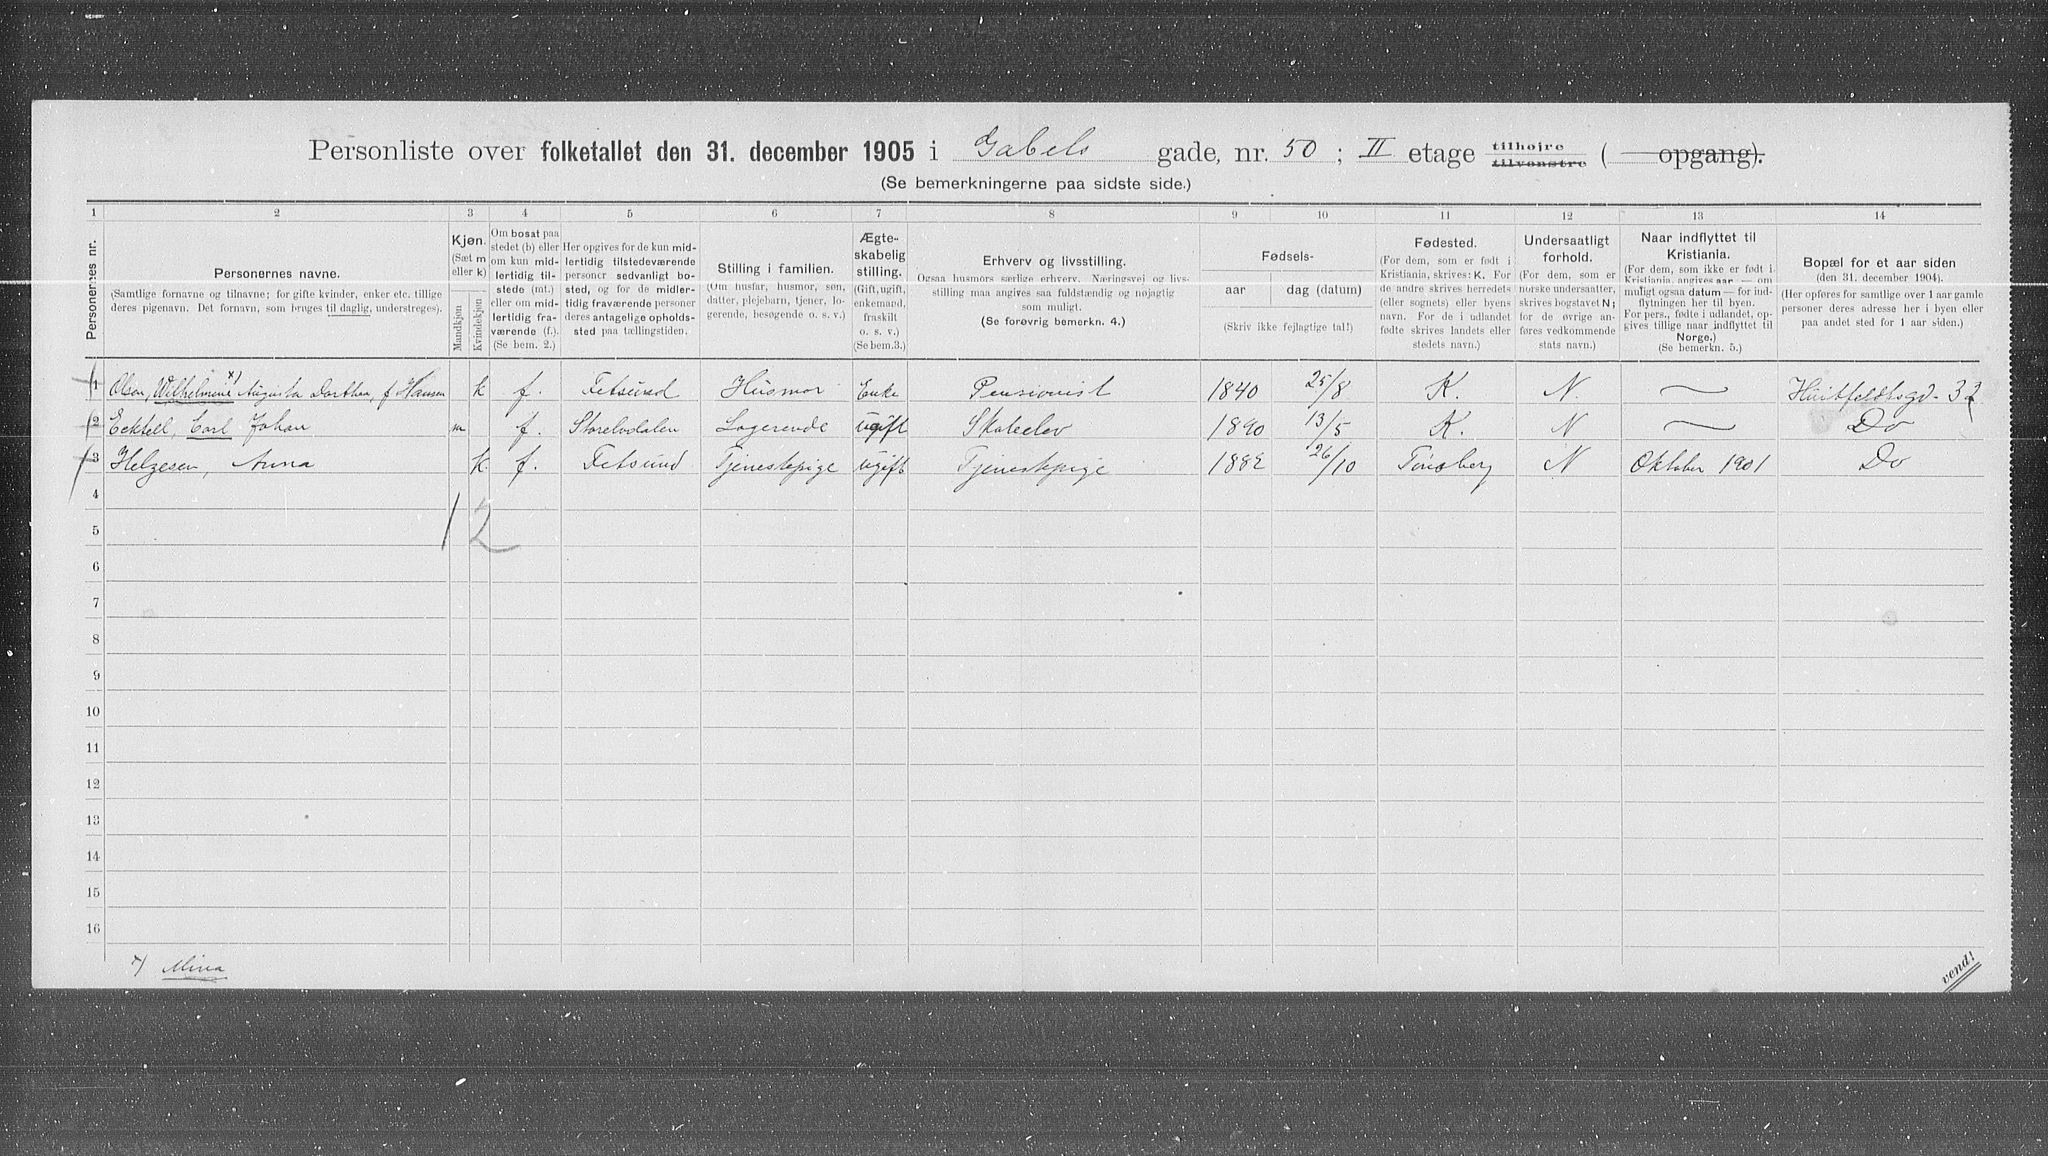 Personliste over folketallet den 31. december 1905 i Gabels gade, nr. 50 ; II etage tilhøjre tilvenstre ( opgang).
(Se bemerkningerne paa sidste side.)
1 2 3 4 5 6 7 8 9 10 11 12 13 14
Personernes nr.
Personernes navne.
(Samtlige fornavne og tilnavne; for gifte kvinder, enker etc. tillige
deres pigenavn. Det fornavn, som bruges til daglig, understreges).
Kjøn.
(Sæt m
eller k)
Mandkjøn
Kvindekjøn
Om bosat paa
stedet (b) eller
om kun mid-
lertidig til-
stede (mt.)
eller om mid-
lertidig fra-
værende (f.).
(Se bem. 2.)
Her opgives for de kun mid-
lertidig tilstedeværende
personer sedvanligt bo-
sted, og for de midler-
tidig fraværende personer
deres antagelige opholds-
sted paa tællingstiden.
Stilling i familien.
(Om husfar, husmor, søn,
datter, plejebarn, tjener, lo-
gerende, besøgende o. s. v.)
Ægte-
skabelig
stilling.
(Gift, ugift,
enkemand,
fraskilt
o. s. v.)
(Se bem.3.)
Erhverv og livsstilling.
Ogsaa husmors særlige erhverv. Næringsvej og livs-
stilling maa angives saa fuldstændig og nøjagtig
som muligt.
(Se forøvrig bemerkn. 4.)
Fødsels-
aar dag (datum)
(Skriv ikke fejlagtige tal!)
Fødested.
(For dem, som er født i
Kristiania, skrives: K. For
de andre skrives herredets
(eller sognets) eller byens
navn. For de i udlandet
fødte skrives landets eller
stedets navn.)
Undersaatligt
forhold.
(For dem, som er
norske undersaatter,
skrives bogstavet N;
for de øvrige an-
føres vedkommende
stats navn.)
Naar indflyttet til
Kristiania.
(For dem, som ikke er født i
Kristiania, angives aar — om
muligt ogsaa datum — for ind-
flytningen her til byen.
For pers., fødte i udlandet, op-
gives tillige naar indflyttet til
Norge.)
(Se bemerkn. 5.)
Bopæl for et aar siden
(den 31. december 1904).
(Her opføres for samtlige over 1 aar gamle
personer deres adresse her i byen eller
paa andet sted for 1 aar siden.)
1 Olsen, Wilhelmine x) Augusta Dorthea, f Hansen k f. Fetsund Husmor Enke Pensionist 1840 25/8 K. N. — Huitfeldtsgd. 32
2 Ecktell, Carl Johan m f. Storelvdalen Logerende ugift Skoleelev 1890 13/5 K. N — Do
3 Helgesen, Anna k f. Fetsund Tjenestepige ugift Tjenestepige 1882 26/10 Tønsberg N Oktober 1901 Do
4
1 2
5
6
7
8
9
10
11
12
13
14
15
16
x) Mina
vend!